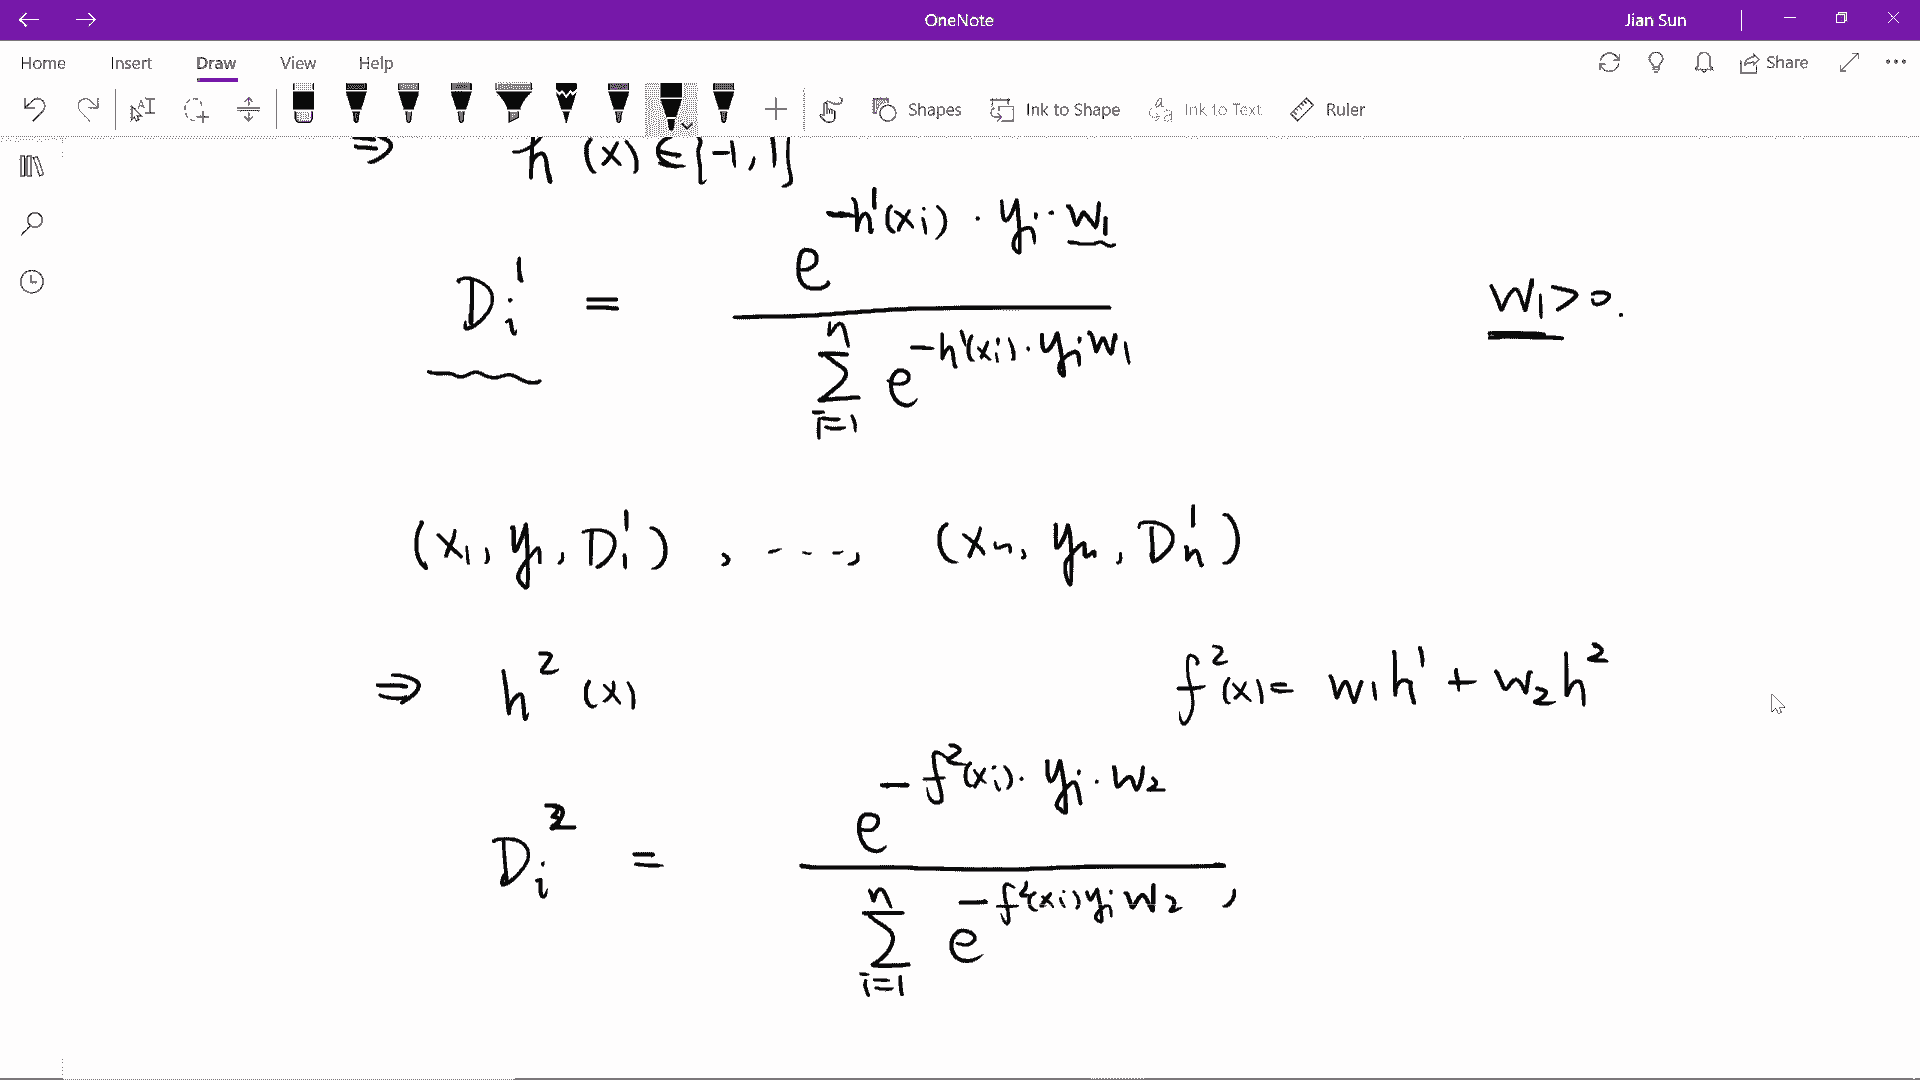 OneNote
Jian Sun
Home Insert Draw View Help
Share
Shapes Ink to Shape Ink to Text Ruler
⇒ h (x) ∈ {-1, 1}
D_i^1 = e^{-h^1(x_i) · y_i · w_1} / \sum_{i=1}^{n} e^{-h^1(x_i) · y_i w_1}
w_1 > 0.
(x_1, y_1, D_1^1), ----, (x_n, y_n, D_n^1)
⇒ h^2 (x)
f^2(x) = w_1 h^1 + w_2 h^2
D_i^2 = e^{-f^2(x_i) · y_i · w_2} / \sum_{i=1}^{n} e^{-f^2(x_i) y_i w_2} ,